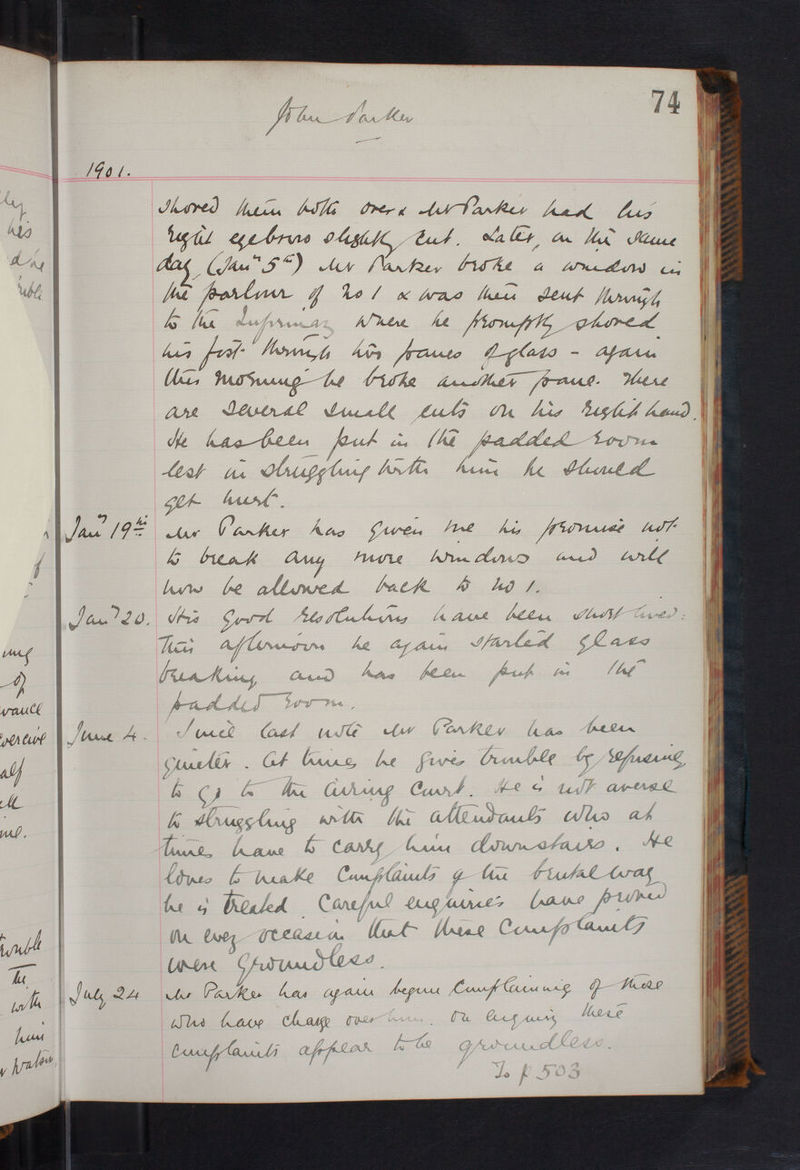 74
John Parker
1901.
shoved them both over & Mr Parker had his
right eyebrow slightly cut. Later, on the same
day, (Jany 5th) Mr Parker broke a window in
the parlour of No 1 & was then sent through
to the Infirmary where he promptly shoved
his fist through two panes of glass - again
this morning he broke another pane. There
are several small cuts on his right hand.
He has been put in the padded room
lest in struggling with him he should
get hurt.
Jany 19th Mr Parker has given me his promise not
to break any more windows and will
now be allowed back to No 1.
Jany 20. His good resolutions have been short lived:
This afternoon he again started glass
breaking and has been put in the
padded room.
June 4. Since last note Mr Parker has been
quieter. At times he gives trouble by refusing
to go to the Airing Court. He is not averse
to struggling with the attendants who at
times have to carry him downstairs. He
loves to make complaints of the brutal way
he is treated. Careful enquiries have proved
on every occasion that these complaints
were groundless.
July 24 Mr Parker has again begun complaining of those
who have charge over him. On enquiry these
complaints appear to be groundless.
To p 503